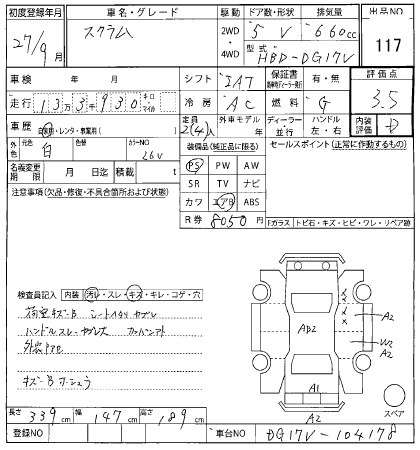 初度登録年月 車名・グレード 駆動 ドア数・形状 排気量 出品NO
27/9月 スクラム 2WD・4WD 5 V 660cc 117
型式 HBD-DG17V
車検 年 月 シフト IAT 保証書 有・無 評価点
走行 13万3千930 キロ・マイル 冷房 AC 燃料 G 3.5
車歴 自家用・レンタ・事業用( ) 定員 2(4)人 外車モデル 年 ディーラー・並行 ハンドル 左・右 内装評価 D
外色 元色 白 色替 カラーNO 26V
装備品(純正品に限る) セールスポイント(正常に作動するもの)
名義変更期限 月 日迄 積載 t
PS PW AW
注意事項(欠品・修復・不具合箇所および状態)
SR TV ナビ
カワ エアB ABS
R券 8050円
Fガラス トビ石・キズ・ヒビ・ワレ・リペア跡
検査員記入 内装 汚レ・スレ・キズ・キレ・コゲ・穴
荷室キズB シート
ハンドルスレ
キズ・B
AB2
A2
W2
A2
A1
A2
スペア
長さ 339cm 幅 147cm 高さ 189cm
登録NO 車台NO DG17V-104178